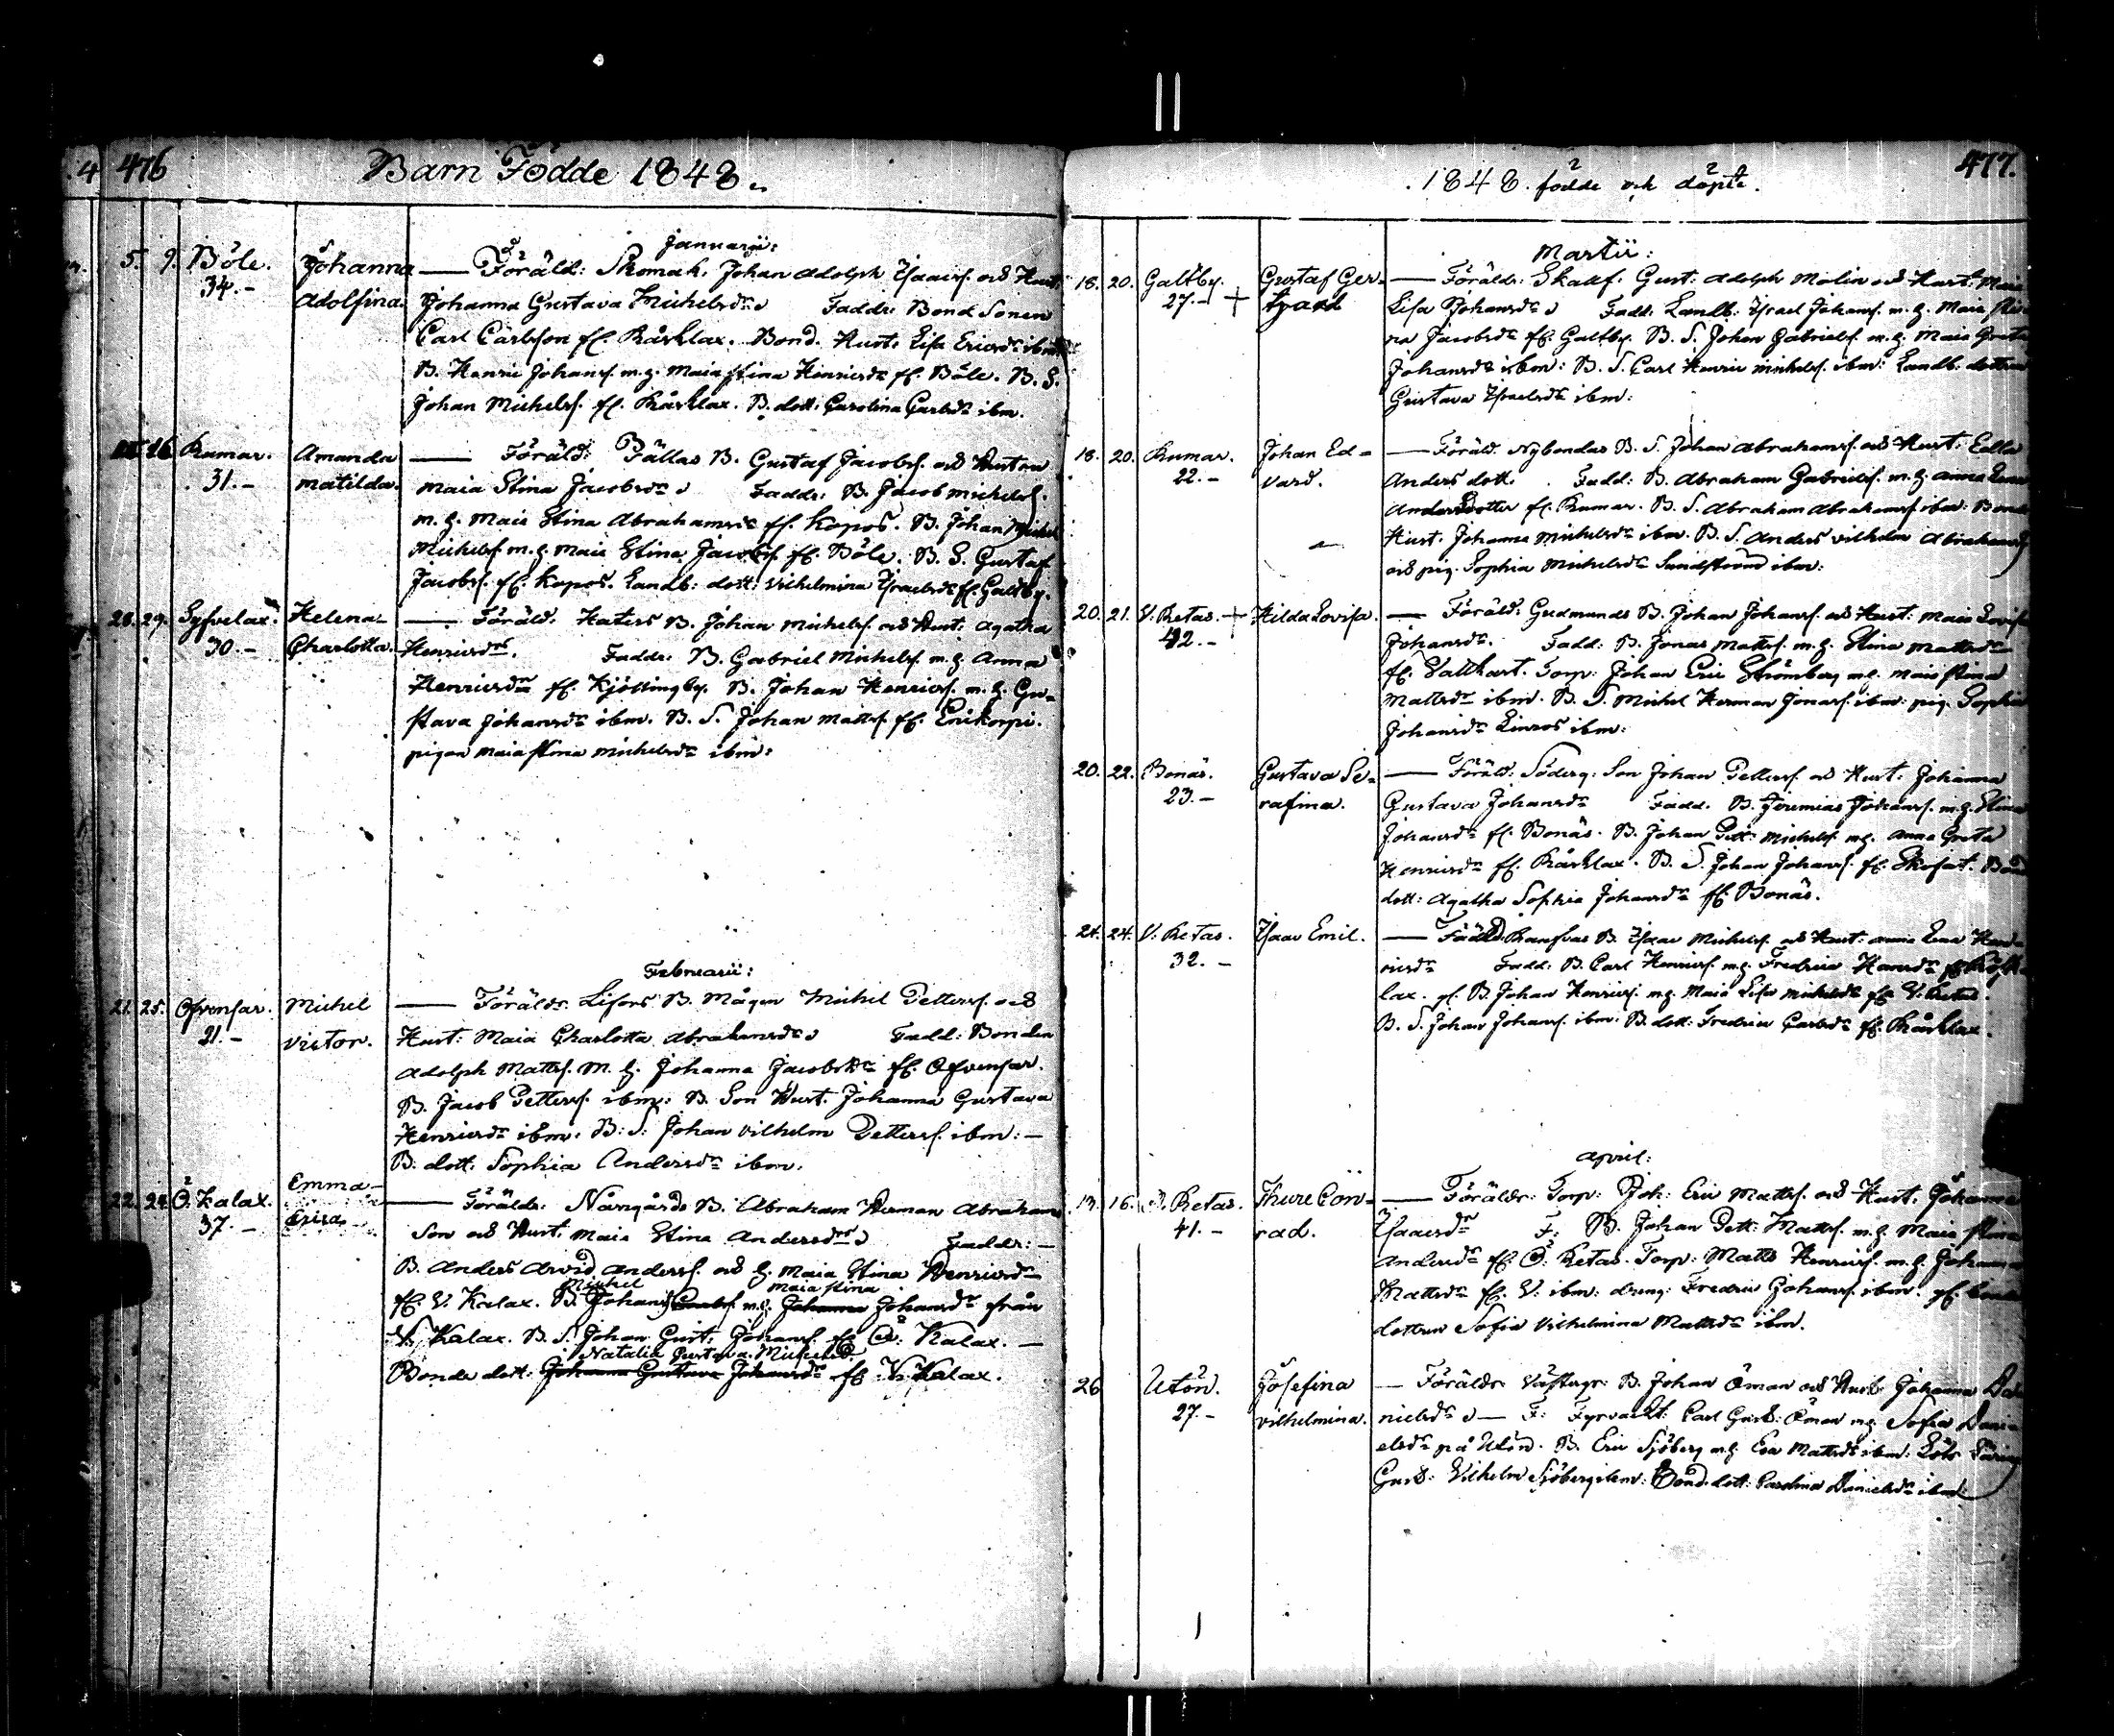 476
Barn Födde 1848.
Januarii:
5. 9. Böle. Johanna — Föräld: Skomak. Johan Adolph Isaacs. och Hust:
34.- Adolfina. Johanna Gustava Michelsdr Faddr: Bond Sonen
Carl Carlsson fr. Kårklax. Bond. Hust. Lisa Ericsdr ibm
B. Henric Johans. m.h. Maia Stina Henricsdr fr. Böle. B. S.
Johan Michels. fr. Kårklax. B. dott. Carolina Carlsdr ibm.
16 Rumar. Amanda — Föräld: Pällas B. Gustaf Jacobs. och Hustru
31.- Matilda. Maia Stina Jacobsdr Faddr: B. Jacob Michels.
m. h. Maia Stina Abrahamsdr fr. Kopos. B. Johan Michel
Michels. m. h. Maia Stina Jacobs. fr. Böle. B. S. Gustaf
Jacobs. fr. Kopos. Landb: dott: Vilhelmina Israelsdr fr. Galtby.
28. 29. Helena — Föräld. Katers B. Johan Michels. och Hust. Agatha
30.- Charlotta. Henricsdr. Faddr: B. Gabriel Michels. m. h. Anna
Henricsdr fr. Kjöttingby. B. Johan Henrics. m. h. Gu-
stava Johansdr ibm. B. S. Johan Matts. fr.
pigan Maia Stina Michelsdr ibm:
Februarii:
21. 25. Ofvensar. Michel — Föräldr: Lisors B. Mågen Michel Petters. och
21.- Victor. Hust: Maia Charlotta Abrahamsdr Fadd: Bonden
Adolph Matts. m. h. Johanna Jacobsdr fr. Ofvensar.
B. Jacob Petters. ibm: B. Son Hust. Johanna Gustava
Henricsdr ibm. B: S: Johan Vilhelm Petters. ibm: —
B. dott. Sophia Andersdr ibm.
22. 24 Ö. Kalax. Emma — Föräldr: Norrgårds B. Abraham Herman Abrahams
37.- son och Hust. Maia Stina Andersdr Faddr: —
B. Anders Arvid Anders. och h. Maia Stina Henricsdr
Michel Maia Stina
fr. V. Kalax. B. Johans Carls. m. h. Johanna Johansdr från
V. Kalax. B. S. Johan Gust. Johans. fr. Ö. Kalax. —
Natalia Gustava Michelsd
Bonde dott. Johanna Gustava Johansdr fr. V. Kalax.
477.
1848. födde och döpte.
Martii:
18. 20. Galtby. Gustaf Ger- — Föräldr: Skallf. Gust. Adolph Molin och Hust. Maia
27.- + hard Lisa Johansdr Fadd: Landb: Israel Johans. m. h. Maia Sti-
na Jacobsdr fr. Galtby. B. S. Johan Gabriels. m. h. Maia Greta
Johansdr ibm: B. S. Carl Henric Michels. ibm: Landb. dottren
Gustava Israelsdr ibm:
18. 20. Rumar. Johan Ed- — Föräld. Nybondas B. S. Johan Abrahams. och Hust: Edla
22.- vard. Anders dott. Fadd: B. Abraham Gabriels. m. h. Anna Lena
Andersdotter fr. Rumar. B. S. Abraham Abrahams. ibm: Bonde
Hust. Johanna Michelsdr ibm. B. S. Anders Vilhelm Abrahams.
och pig. Sophia Michelsdr Sundström ibm:
20. 21. V. Retas. + Hilda Lovisa. — Föräld: Gudmunds B. Johan Johans. och Hust: Maia Lovisa
42.- Johansdr. Fadd: B. Jonas Matts. m. h. Stina Mattsdr
fr. Torp: Johan Eric Strömberg m.h. Maia Stina
Mattsdr ibm. B. S. Michel Herman Jonas. ibm: pig. Sophia
Johansdr Linros ibm:
20. 22. Bonäs. Gustava Se- — Föräld: Söderg: Son Johan Petters. och Hust: Johanna
23.- rafina. Gustava Johansdr Fadd. B. Jeremias Johans. m.h. Stina
Johansdr fr. Bonäs. B. Johan Pett: Michels. m.h. Anna Greta
Henricsdr fr. Kårklax. B. S. Johan Johans. fr. B
dott: Agatha Sophia Johansdr fr. Bonäs.
24. 24. V. Retas. Isaac Emil. — B. Isaac Michels. och Hust: Anna Lena Hen-
32.- ricsdr Fadd: B. Carl Henrics. m.h. Fredrica Hansdr
lax. B. Johan Henrics. m.h. Maia Lisa Michelsdr fr V. Retas.
B. S. Johan Johans. ibm. B. dott: Fredrica Carlsdr fr. Kårklax.
April:
13. 16. Retas. Thure Con- — Föräldr: Torp: Joh: Eric Matts. och Hust. Johanna
41.- rad. Isaacsdr F: B. Johan Pett: Matts. m.h. Maia Stina
Andersdr fr. Ö: Retas. Torp: Matts Henrics. m.h. Johanna
Mattsdr fr. V: ibm: dreng: Fredric Johans. ibm.
dottren Sofia Vilhelmina Mattsdr ibm.
26 Utön. Josefina — Föräldr. Västergr: B. Johan Öman och Hust: Johanna Da-
27.- Vilhelmina. nielsdr — F: Fyrvackt: Carl Gust: Öman m.h. Sofia Dani-
elsdr på Utön. B. Eric Sjöberg m.h. Eva Mattsdr ibm: Lots
Gust: Vilhelm Sjöberg ibm: Bond. dott: Carolina Danielsdr ibm: